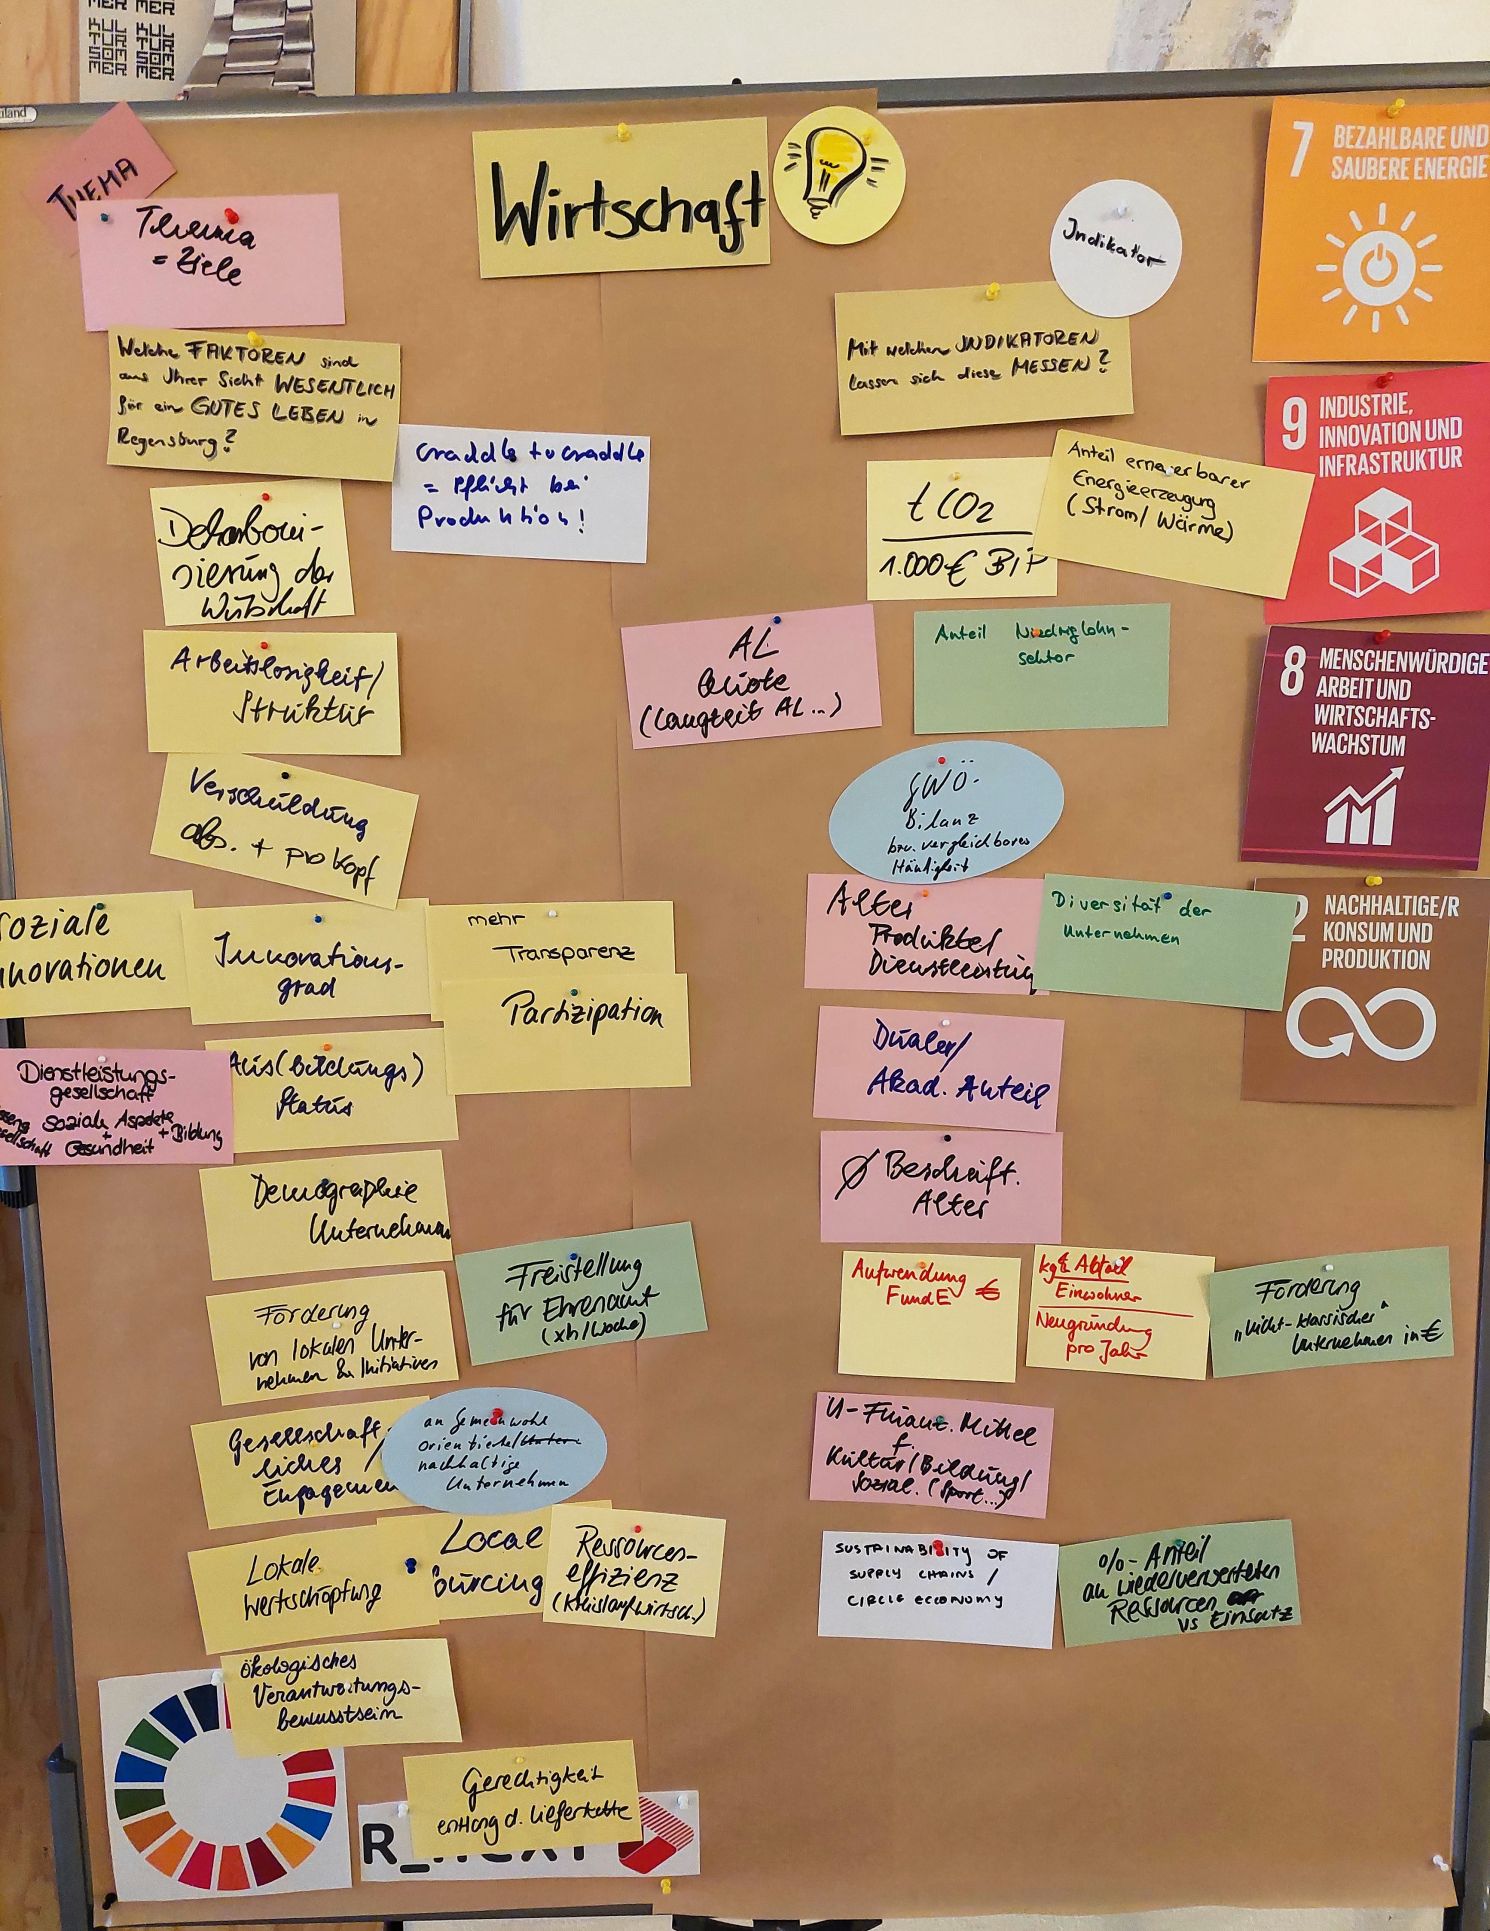 THEMA
Thema
= Ziele
Wirtschaft
Indikator
7 BEZAHLBARE UND
SAUBERE ENERGIE
Welche FAKTOREN sind
aus Ihrer Sicht WESENTLICH
für ein GUTES LEBEN in
Regensburg?
Mit welchen INDIKATOREN
lassen sich diese MESSEN?
craddle to craddle
= Pflicht bei
Produktion!
tCO2
1.000€ BIP
Anteil erneuerbarer
Energieerzeugung
(Strom/Wärme)
9 INDUSTRIE,
INNOVATION UND
INFRASTRUKTUR
Dekarboni-
sierung der
Wirtschaft
Arbeitslosigkeit/
Struktur
AL
Quote
(Langzeit AL...)
Anteil Niedriglohn-
sektor
8 MENSCHENWÜRDIGE
ARBEIT UND
WIRTSCHAFTS-
WACHSTUM
Verschuldung
abs. + pro Kopf
GWÖ-
Bilanz
bzw. vergleichbares
Häufigkeit
soziale
nnovationen
Innovations-
grad
mehr
Transparenz
Partizipation
Alter
Produkte/
Dienstleistung
Diversität der
Unternehmen
2 NACHHALTIGE/R
KONSUM UND
PRODUKTION
Dienstleistungs-
gesellschaft
soziale Aspekte
+ Gesundheit + Bildung
Aus(bildungs)
status
Dualer/
Akad. Anteil
Demographie
Unternehmen
Ø Beschäft.
Alter
Förderung
von lokalen Unter-
nehmen & Initiativen
Freistellung
für Ehrenamt
(xh/Woche)
Aufwendung
FundE €
kg Abfall
Einwohner
Neugründung
pro Jahr
Förderung
"nicht-klassischer"
Unternehmen in €
Gesellschaft-
liches /
Engagemen
an Gemeinwohl
orientierte/
nachhaltige
Unternehmen
U-Finanz. Mittel
f.
Kultur/Bildung/
Sozial. (Sport...)
Lokale
Wertschöpfung
Local
ourcing
Ressourcen-
effizienz
(Kreislaufwirtsch.)
SUSTAINABILITY OF
SUPPLY CHAINS /
CIRCLE ECCONOMY
%-Anteil
an wiederverwerteten
Ressourcen
vs Einsatz
ökologisches
Verantwortungs-
bewusstsein
Gerechtigkeit
entlang d. Lieferkette
R_NEXT